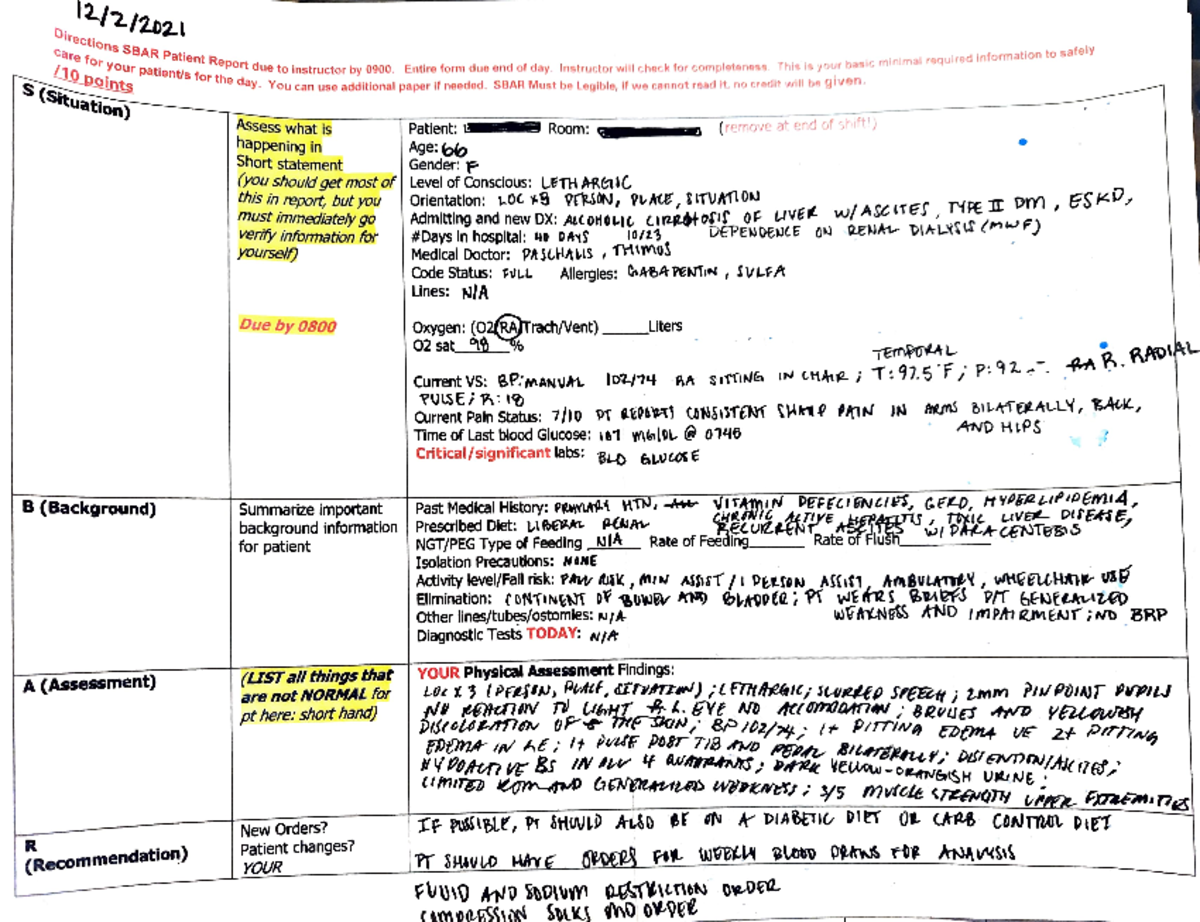 12/2/2021
Directions SBAR Patient Report due to instructor by 0900. Entire form due end of day. Instructor will check for completeness. This is your basic minimal required information to safely
care for your patient/s for the day. You can use additional paper if needed. SBAR Must be Legible, if we cannot read it, no credit will be given.
/10 points
S (Situation)
Assess what is
happening in
Short statement
(you should get most of
this in report, but you
must immediately go
verify information for
yourself)
Due by 0800
Patient: Room: (remove at end of shift!)
Age: 66
Gender: F
Level of Conscious: LETHARGIC
Orientation: LOC x3 PERSON, PLACE, SITUATION
Admitting and new DX: ALCOHOLIC CIRRHOSIS OF LIVER W/ ASCITES, TYPE II DM, ESKD,
DEPENDENCE ON RENAL DIALYSIS (MWF)
#Days in hospital: 40 DAYS 10/23
Medical Doctor: PASCHALIS, THIMOS
Code Status: FULL Allergies: GABAPENTIN, SULFA
Lines: N/A
Oxygen: (O2/RA/Trach/Vent) ______Liters
O2 sat 98 %
Current VS: BP: MANUAL 102/74 RA SITTING IN CHAIR; TEMPORAL T: 97.5°F; P: 92 R. RADIAL
PULSE; R: 18
Current Pain Status: 7/10 PT REPORTS CONSISTENT SHARP PAIN IN ARMS BILATERALLY, BACK,
AND HIPS
Time of Last blood Glucose: 187 MG/DL @ 0745
Critical/significant labs: BLD GLUCOSE
B (Background)
Summarize important
background information
for patient
Past Medical History: PRIMARY HTN, VITAMIN DEFECIENCIES, GERD, HYPERLIPIDEMIA,
CHRONIC ACTIVE HEPATITIS, TOXIC LIVER DISEASE,
RECURRENT ASCITES W/ PARACENTESIS
Prescribed Diet: LIBERAL RENAL
NGT/PEG Type of Feeding N/A Rate of Feeding______ Rate of Flush______
Isolation Precautions: NONE
Activity level/Fall risk: FALL RISK, MIN ASSIST/1 PERSON ASSIST, AMBULATORY, WHEELCHAIR USE
Elimination: CONTINENT OF BOWEL AND BLADDER; PT WEARS BRIEFS D/T GENERALIZED
WEAKNESS AND IMPAIRMENT; NO BRP
Other lines/tubes/ostomies: N/A
Diagnostic Tests TODAY: N/A
A (Assessment)
(LIST all things that
are not NORMAL for
pt here: short hand)
YOUR Physical Assessment Findings:
LOC x 3 (PERSON, PLACE, SITUATION); LETHARGIC; SLURRED SPEECH; 2MM PINPOINT PUPILS
NO REACTION TO LIGHT L. EYE NO ACCOMODATION; BRUISES AND YELLOWISH
DISCOLORATION OF THE SKIN; BP 102/74; 1+ PITTING EDEMA UE 2+ PITTING
EDEMA IN LE; 1+ PULSE POST TIB AND PEDAL BILATERALLY; DISTENTION/ASCITES;
HYPOACTIVE BS IN ALL 4 QUADRANTS; DARK YELLOW-ORANGISH URINE;
LIMITED ROM AND GENERALIZED WEAKNESS; 3/5 MUSCLE STRENGTH UPPER EXTREMITIES
R
(Recommendation)
New Orders?
Patient changes?
YOUR
IF POSSIBLE, PT SHOULD ALSO BE ON A DIABETIC DIET OR CARB CONTROL DIET
PT SHOULD HAVE ORDERS FOR WEEKLY BLOOD DRAWS FOR ANALYSIS
FLUID AND SODIUM RESTRICTION ORDER
COMPRESSION SOCKS MD ORDER